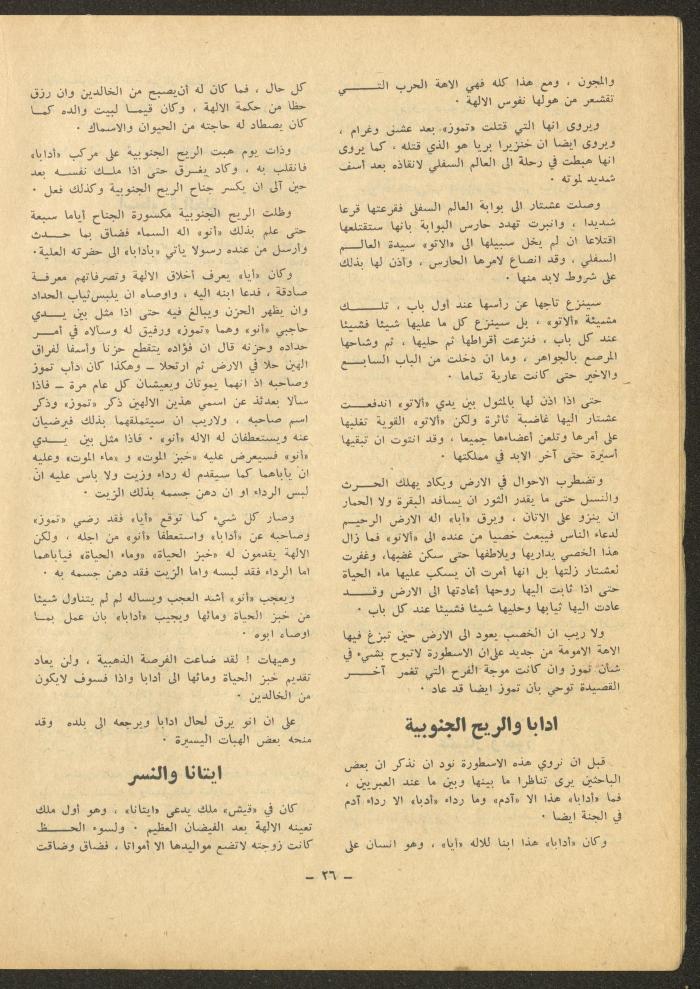 والمجون ، ومع هذا كله فهي الاهة الحرب التي
تقشعر من هولها نفوس الالهة ·
ويروى انها التي قتلت «تموز» بعد عشق وغرام ،
ويروى ايضا ان خنزيرا بريا هو الذي قتله ، كما يروى
انها هبطت في رحلة الى العالم السفلي لانقاذه بعد أسف
شديد لموته ·
وصلت عشتار الى بوابة العالم السفلى فقرعتها قرعا
شديدا ، وانبرت تهدد حارس البوابة بانها ستقتلعها
اقتلاعا ان لم يخل سبيلها الى «الاتو» سيدة العالم
السفلي ، وقد انصاع لامرها الحارس ، وأذن لها بذلك
على شروط لابد منها ·
سينزع تاجها عن رأسها عند أول باب ، تلك
مشيئة «ألاتو» ، بل سينزع كل ما عليها شيئا فشيئا
عند كل باب ، فنزعت أقراطها ثم حليها ، ثم وشاحها
المرصع بالجواهر ، وما ان دخلت من الباب السابع
والاخير حتى كانت عارية تماما ·
حتى اذا اذن لها بالمثول بين يدي «ألاتو» اندفعت
عشتار اليها غاضبة ثائرة ولكن «ألاتو» القوية تغلبها
على أمرها وتلعن أعضاءها جميعا ، وقد انتوت ان تبقيها
أسيرة حتى آخر الابد في مملكتها ·
وتضطرب الاحوال في الارض ويكاد يهلك الحرث
والنسل حتى ما يقدر الثور ان يسافد البقرة ولا الحمار
ان ينزو على الاتان ، ويرق «أيا» اله الارض الرحيم
لدعاء الناس فيبعث خصيا من عنده الى «ألاتو» فما زال
هذا الخصي يداريها ويلاطفها حتى سكن غضبها، وغفرت
لعشتار زلتها بل انها أمرت أن يسكب عليها ماء الحياة
حتى اذا ثابت اليها روحها أعادتها الى الارض وقد
عادت اليها ثيابها وحليها شيئا فشيئا عند كل باب ·
ولا ريب ان الخصب يعود الى الارض حين تبزغ فيها
الاهة الامومة من جديد على ان الاسطورة لاتبوح بشيء في
شان تموز وان كانت موجة الفرح التي تغمر آخر
القصيدة توحي بأن تموز ايضا قد عاد ·
ادابا والريح الجنوبية
قبل ان نروي هذه الاسطورة نود ان نذكر ان بعض
الباحثين يرى تناظرا ما بينها وبين ما عند العبريين ،
فما «أدابا» هذا الا «آدم» وما رداء «أدبا» الا رداء آدم
في الجنة ايضا ·
وكان «أدابا» هذا ابنا للاله «أيا» ، وهو انسان على
كل حال ، فما كان له أن يصبح من الخالدين وان رزق
حظا من حكمة الالهة ، وكان قيما لبيت والده كما
كان يصطاد له حاجته من الحيوان والاسماك ·
وذات يوم هبت الريح الجنوبية على مركب «أدابا»
فانقلب به ، وكاد يغرق حتى اذا ملك نفسه بعد
حين آلى ان يكسر جناح الريح الجنوبية وكذلك فعل ·
وظلت الريح الجنوبية مكسورة الجناح اياما سبعة
حتى علم بذلك «أنو» اله السماء فضاق بما حدث
وأرسل من عنده رسولا يأتي «بأدابا» الى حضرته العلية·
وكان «أيا» يعرف أخلاق الالهة وتصرفاتهم معرفة
صادقة ، فدعا ابنه اليه ، واوصاه ان يلبس ثياب الحداد
وان يظهر الحزن ويبالغ فيه حتى اذا مثل بين يدي
حاجبي «أنو» وهما «تموز» ورفيق له وسالاه في أمر
حداده وحزنه قال ان فؤاده يتقطع حزنا وأسفا لفراق
الهين حلا في الارض ثم ارتحلا – وهكذا كان دأب تموز
وصاحبه اذ انهما يموتان ويعيشان كل عام مرة – فاذا
سالا بعدئذ عن اسمي هذين الالهين ذكر «تموز» وذكر
اسم صاحبه ، ولاريب ان سيتملقهما بذلك فيرضيان
عنه ويستعطفان له الاله «أنو» · فاذا مثل بين يدي
«أنو» فسيعرض عليه «خبز الموت» و «ماء الموت» وعليه
ان يأباهما كما سيقدم له رداء وزيت ولا بأس عليه ان
لبس الرداء او ان دهن جسمه بذلك الزيت ·
وصار كل شيء كما توقع «أيا» فقد رضي «تموز»
وصاحبه عن «أدابا» واستعطفا «أنو» من اجله ، ولكن
الالهة يقدمون له «خبز الحياة» «وماء الحياة» فيأباهما
اما الرداء فقد لبسه واما الزيت فقد دهن جسمه به ·
ويعجب «أنو» أشد العجب ويساله لم لم يتناول شيئا
من خبز الحياة ومائها ويجيب «أدابا» بان عمل بما
اوصاه ابوه ·
وهيهات ! لقد ضاعت الفرصة الذهبية ، ولن يعاد
تقديم خبز الحياة ومائها الى أدابا واذا فسوف لايكون
من الخالدين ·
على ان انو يرق لحال ادابا ويرجعه الى بلده وقد
منحه بعض الهبات اليسيرة ·
ايتانا والنسر
كان في «قيش» ملك يدعى «ايتانا» ، وهو أول ملك
تعينه الالهة بعد الفيضان العظيم · ولسوء الحظ
كانت زوجته لاتضع مواليدها الا أمواتا ، فضاق وضاقت
– ٢٦ –